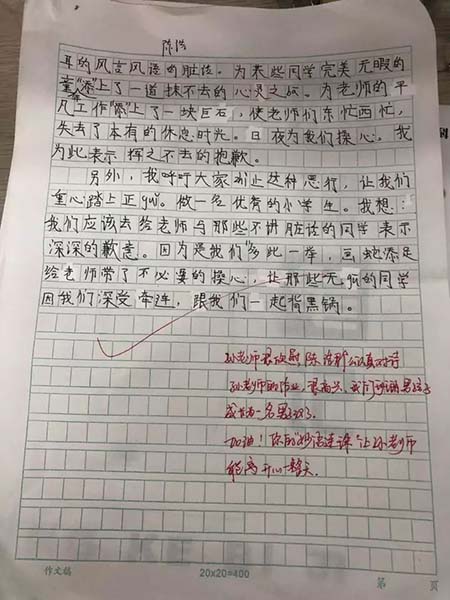 陈浩
耳的风言风语的脏话。为某些同学完美无暇的
童年"添"上了一道抹不去的心灵之。为老师的平
凡工作"添"上了一块巨石,使老师们东忙西忙,
失去了本有的休息时光。日夜为我们操心,我
为此表示挥之不去的抱歉。
另外,我呼吁大家制止这种恶行,让我们
重心踏上正gui。做一名优秀的小学生。我想:
我们应该去给老师与那些不讲脏话的同学表示
深深的歉意。因为是我们"多此一举,画蛇添足
给老师带了不必要的操心,让那些无gu的同学
因我们深受牵连,跟我们一起背黑锅。
孙老师很欣慰,陈浩那么认真对待
孙老师的作业,很高兴,我们的男孩子
成长为一名男了。
加油!你的"妙语连珠"让孙老师
能高开心一整天。
作文稿
20x20=400
第 页